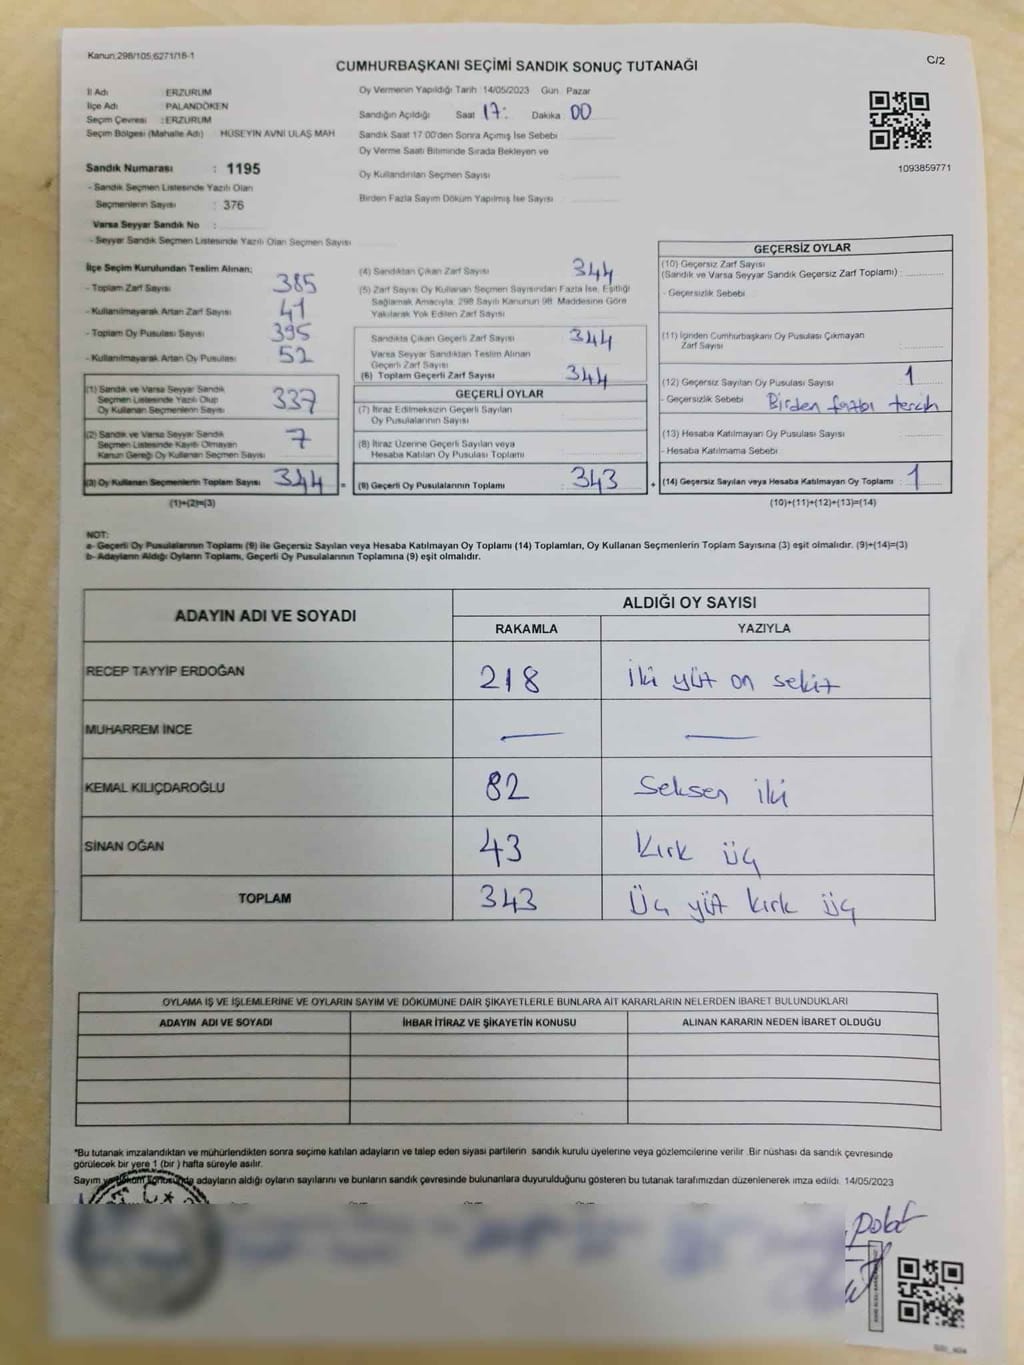 Kanun,298/105,6271/18-1
C/2
CUMHURBAŞKANI SEÇİMİ SANDIK SONUÇ TUTANAĞI
İl Adı ERZURUM
İlçe Adı PALANDÖKEN
Seçim Çevresi :ERZURUM
Seçim Bölgesi (Mahalle Adı) HÜSEYİN AVNİ ULAŞ MAH
Sandık Numarası : 1195
- Sandık Seçmen Listesinde Yazılı Olan
Seçmenlerin Sayısı : 376
Varsa Seyyar Sandık No :
- Seyyar Sandık Seçmen Listesinde Yazılı Olan Seçmen Sayısı
Oy Vermenin Yapıldığı Tarih 14/05/2023 Gün Pazar
Sandığın Açıldığı Saat 17: Dakika 00
Sandık Saat 17 00'den Sonra Açımış İse Sebebi
Oy Verme Saati Bitiminde Sırada Bekleyen ve
Oy Kullandırılan Seçmen Sayısı
Birden Fazla Sayım Döküm Yapılmış İse Sayısı
1093859771
İlçe Seçim Kurulundan Teslim Alınan;
- Toplam Zarf Sayısı 385
- Kullanılmayarak Artan Zarf Sayısı 41
- Toplam Oy Pusulası Sayısı 395
- Kullanılmayarak Artan Oy Pusulası 52
(1) Sandık ve Varsa Seyyar Sandık
Seçmen Listesinde Yazılı Olup
Oy Kullanan Seçmenlerin Sayısı 337
(2) Sandık ve Varsa Seyyar Sandık
Seçmen Listesinde Kayıtlı Olmayan
Kanun Gereği Oy Kullanan Seçmen Sayısı 7
(3) Oy Kullanan Seçmenlerin Toplam Sayısı 344 =
(1)+(2)=(3)
(4) Sandıktan Çıkan Zarf Sayısı 344
(5) Zarf Sayısı Oy Kullanan Seçmen Sayısından Fazla İse, Eşitliği
Sağlamak Amacıyla, 298 Sayılı Kanunun 98. Maddesine Göre
Yakılarak Yok Edilen Zarf Sayısı
Sandıkta Çıkan Geçerli Zarf Sayısı 344
Varsa Seyyar Sandıktan Teslim Alınan
Geçerli Zarf Sayısı
(6) Toplam Geçerli Zarf Sayısı 344
GEÇERLİ OYLAR
(7) İtiraz Edilmeksizin Geçerli Sayılan
Oy Pusulalarının Sayısı
(8) İtiraz Üzerine Geçerli Sayılan veya
Hesaba Katılan Oy Pusulası Toplamı
(9) Geçerli Oy Pusulalarının Toplamı 343 +
GEÇERSİZ OYLAR
(10) Geçersiz Zarf Sayısı
(Sandık ve Varsa Seyyar Sandık Geçersiz Zarf Toplamı) :
- Geçersizlik Sebebi
(11) İçinden Cumhurbaşkanı Oy Pusulası Çıkmayan
Zarf Sayısı
(12) Geçersiz Sayılan Oy Pusulası Sayısı 1
- Geçersizlik Sebebi Birden fazla tercih
(13) Hesaba Katılmayan Oy Pusulası Sayısı
- Hesaba Katılmama Sebebi
(14) Geçersiz Sayılan veya Hesaba Katılmayan Oy Toplamı : 1
(10)+(11)+(12)+(13)=(14)
NOT:
a- Geçerli Oy Pusulalarının Toplamı (9) ile Geçersiz Sayılan veya Hesaba Katılmayan Oy Toplamı (14) Toplamları, Oy Kullanan Seçmenlerin Toplam Sayısına (3) eşit olmalıdır. (9)+(14)=(3)
b- Adayların Aldığı Oyların Toplamı, Geçerli Oy Pusulalarının Toplamına (9) eşit olmalıdır.
ADAYIN ADI VE SOYADI ALDIĞI OY SAYISI
RAKAMLA YAZIYLA
RECEP TAYYİP ERDOĞAN 218 İki yüz on sekiz
MUHARREM İNCE — —
KEMAL KILIÇDAROĞLU 82 Seksen iki
SİNAN OĞAN 43 Kırk üç
TOPLAM 343 Üç yüz kırk üç
OYLAMA İŞ VE İŞLEMLERİNE VE OYLARIN SAYIM VE DÖKÜMÜNE DAİR ŞİKAYETLERLE BUNLARA AİT KARARLARIN NELERDEN İBARET BULUNDUKLARI
ADAYIN ADI VE SOYADI İHBAR İTİRAZ VE ŞİKAYETİN KONUSU ALINAN KARARIN NEDEN İBARET OLDUĞU
*Bu tutanak imzalandıktan ve mühürlendikten sonra seçime katılan adayların ve talep eden siyasi partilerin sandık kurulu üyelerine veya gözlemcilerine verilir .Bir nüshası da sandık çevresinde
görülecek bir yere 1 (bir ) hafta süreyle asılır.
Sayım ve döküm konusunda adayların aldığı oyların sayılarını ve bunların sandık çevresinde bulunanlara duyurulduğunu gösteren bu tutanak tarafımızdan düzenlenerek imza edildi. 14/05/2023
polat